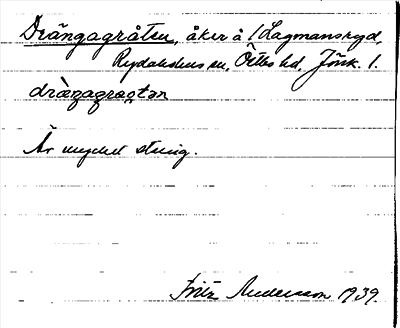 Drängagråten, åker å 1 Lagmansryd,
Rydaholms sn, Östbo hd, Jönk. l.
dràŋagragtan
Är mycket stenig.
Fritz Andersson 1939.